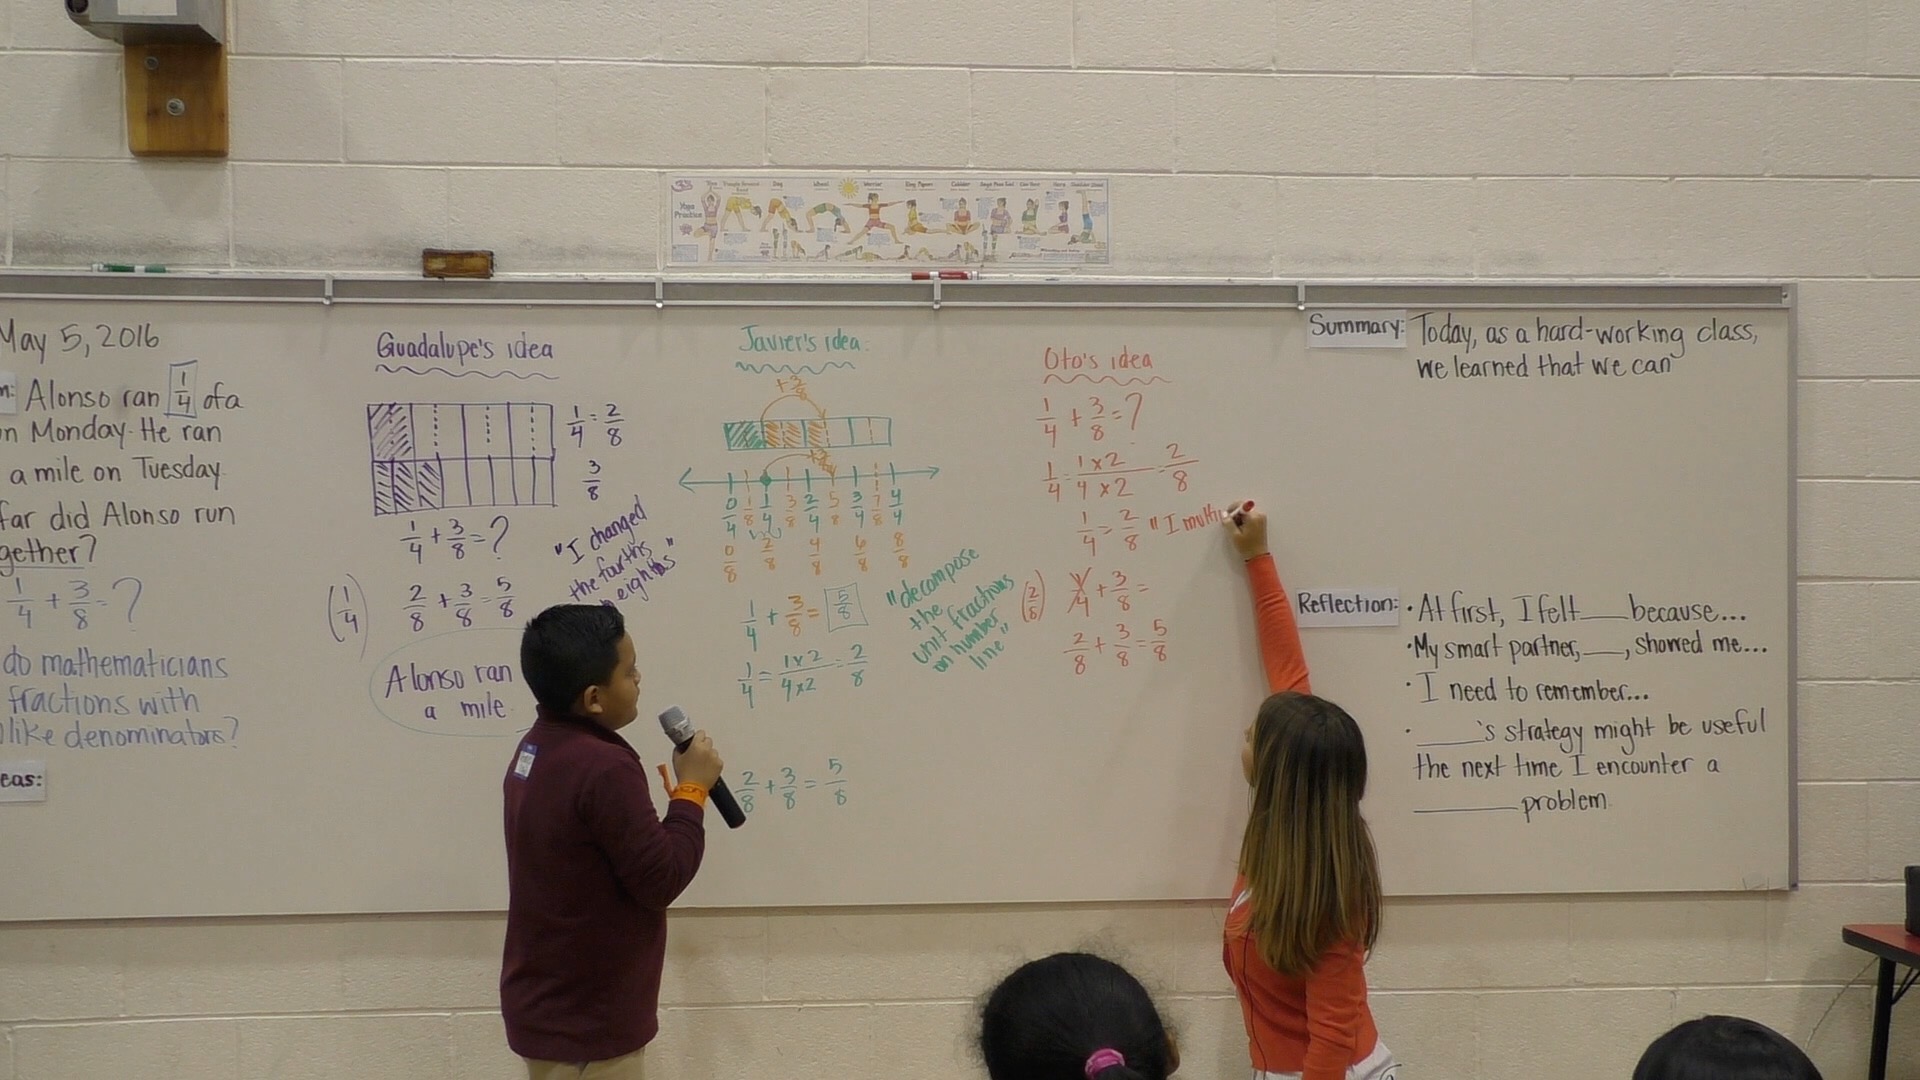 May 5, 2016
Alonso ran 1/4 of a
n Monday. He ran
a mile on Tuesday.
far did Alonso run
gether?
1/4 + 3/8 = ?
do mathematicians
fractions with
like denominators?
eas:
Guadalupe's idea
1/4 = 2/8
3/8
1/4 + 3/8 = ?
(1/4) 2/8 + 3/8 = 5/8
"I changed
the fourths
eighths"
Alonso ran
a mile.
Javier's idea:
+3/8
+3/8
0/4 1/8 1/4 3/8 2/4 5/8 3/4 7/8 4/4
0/8 2/8 4/8 6/8 8/8
1/4 + 3/8 = 5/8
1/4 = 1x2/4x2 = 2/8
2/8 + 3/8 = 5/8
"decompose
the
unit fractions
on number
line"
Oto's idea
1/4 + 3/8 = ?
1/4 = 1x2/4x2 = 2/8
1/4 = 2/8 "I multi
(2/8) 1/4 + 3/8 =
2/8 + 3/8 = 5/8
Summary: Today, as a hard-working class,
we learned that we can
Reflection: • At first, I felt ___ because...
• My smart partner, ___, showed me...
• I need to remember...
• ___'s strategy might be useful
the next time I encounter a
___ problem.
Yoga
Practice